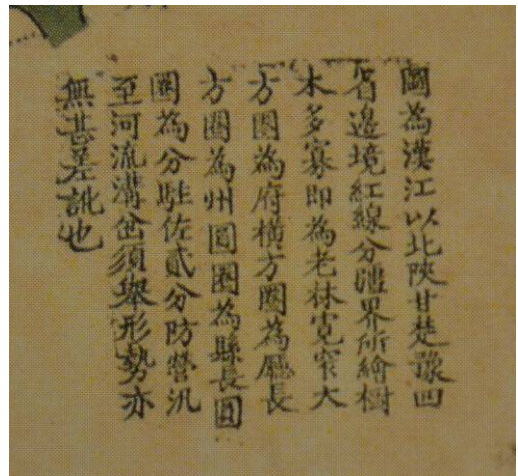 圖為漢江以北陝甘楚豫四
省邊境紅線分疆界所繪樹
木多寡即為老林寬窄大
方圈為府橫方圈為廳長
方圈為州圓圈為縣長圓
圈為分駐佐貳分防營汛
至河流溝岔須舉形勢亦
無甚差訛也